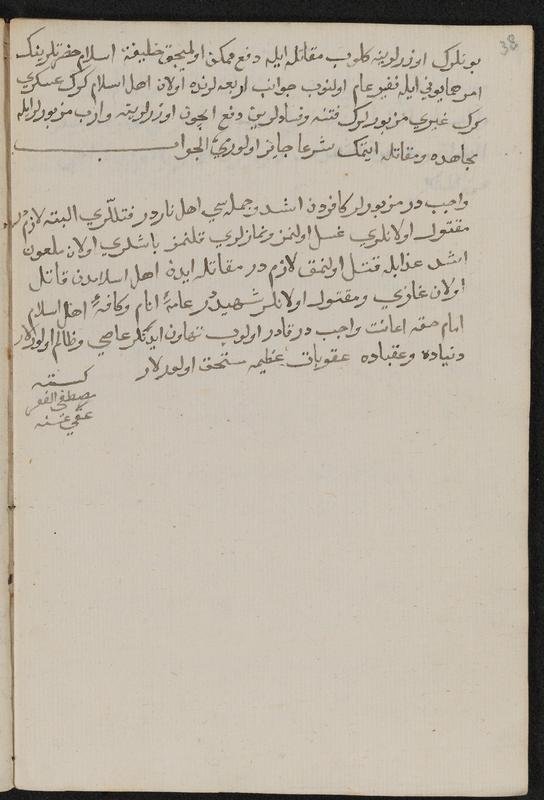 38
بونلرك اوزرلرينه كلوب مقاتله ايله دفع ممكن اولميجق خليفة اسلام حضرتلرينك
امر همايوني ايله نفير عام اولنوب جوانب اربعه لرنده اولان اهل اسلام كرك عسكري
كرك غيري مزبورلرك فتنه و فسادلرين دفع ايچون اوزرلرينه واروب مزبورلرايله
مجاهده ومقاتله ايتمك شرعا جايز اولورمي الجواب
واجب در مزبورلر كافردن اشد وجمله سي اهل ناردر قتللري البته لازم در
مقتول اولانلري غسل اولنمز ونمازلري قلنمز باشلري اولان ملعون
اشد عذابله قتل اولنمق لازم در مقاتله ايدن اهل اسلامدن قاتل
اولان غازي ومقتول اولانلر شهيددر عامهٔ انام وكافهٔ اهل اسلام
امام حقه اعانت واجب در قادر اولوب تهاون ايدنلر عاصي وظالم اولورلار
دنياده وعقباده عقوبات عظيمه مستحق اولورلار
كتبه
مصطفى الفقير
عفي عنه